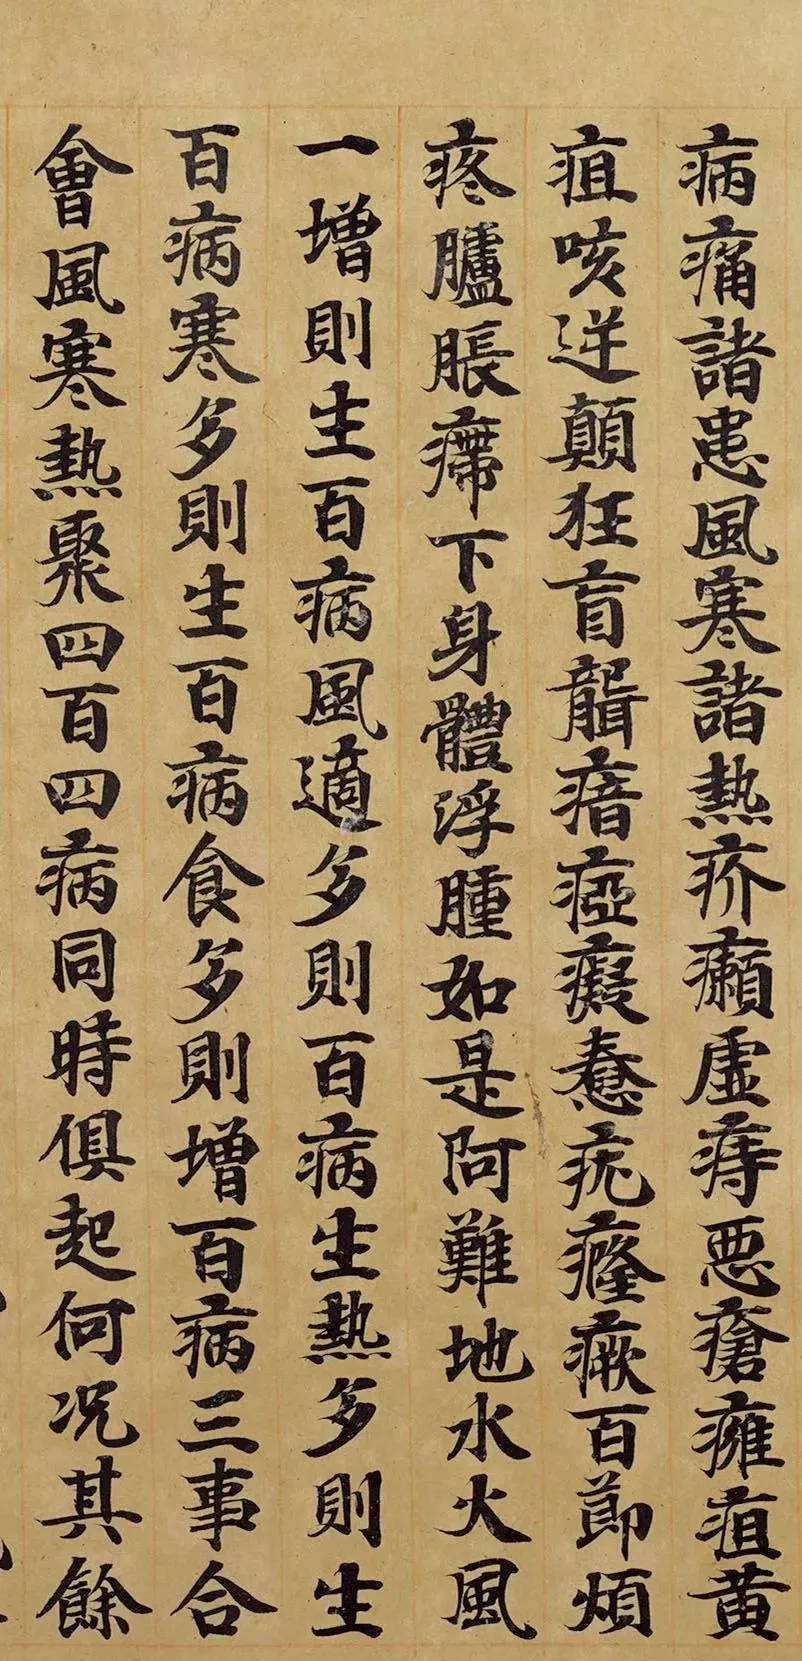 病痛諸患風寒諸熱疥癩虛痔悪瘡癰疽黄
疽咳逆顛狂盲聾瘖瘂癡惷疣癃瘷百節煩
疼臚脹㿃下身體浮腫如是阿難地水火風
一增則生百病風適多則百病生熱多則生
百病寒多則生百病食多則增百病三事合
會風寒熱聚四百四病同時俱起何况其餘